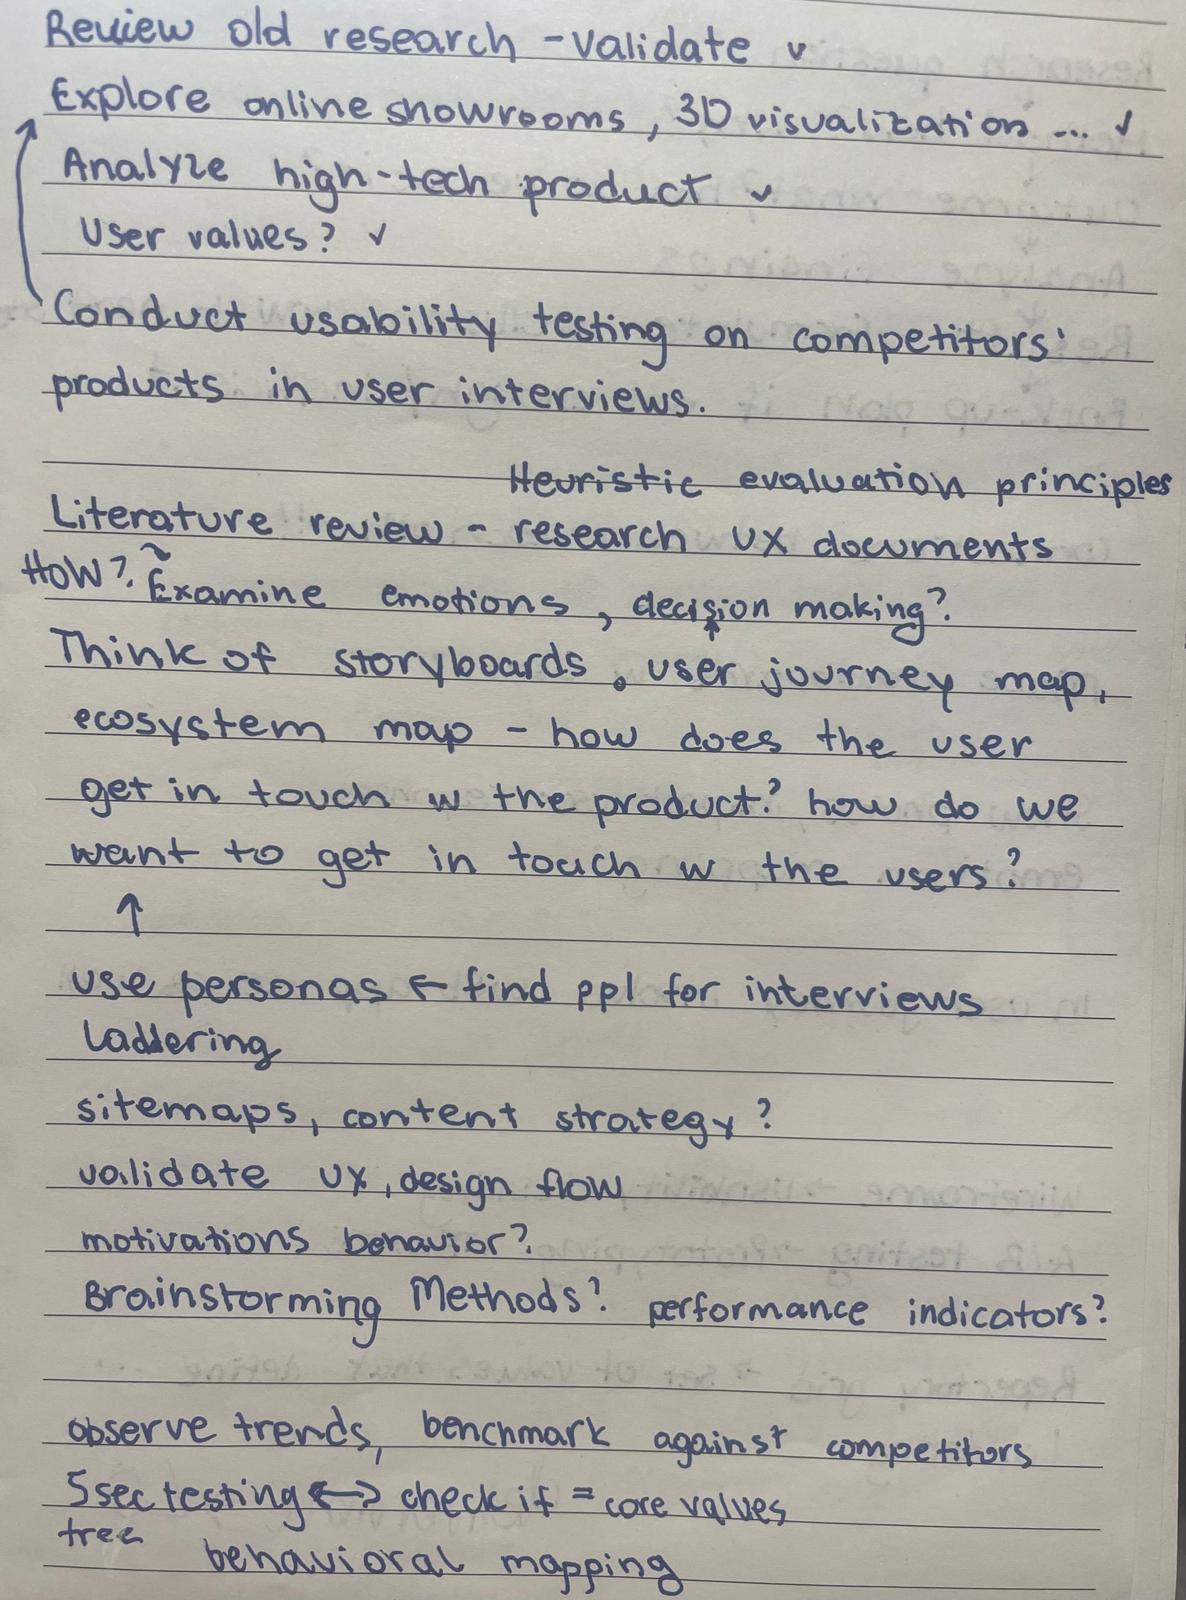 Review old research - validate ✓
Explore online showrooms, 3D visualization ... ✓
Analyze high-tech product ✓
User values? ✓
Conduct usability testing on competitors'
products in user interviews.
Heuristic evaluation principles
Literature review - research UX documents
HOW? Examine emotions, decision making?
Think of storyboards, user journey map,
ecosystem map - how does the user
get in touch w the product? how do we
want to get in touch w the users?
↑
use personas ← find ppl for interviews
Laddering
sitemaps, content strategy?
validate UX, design flow
motivations behavior?
Brainstorming Methods? performance indicators?
observe trends, benchmark against competitors
5sec testing <-> check if = core values
tree
behavioral mapping